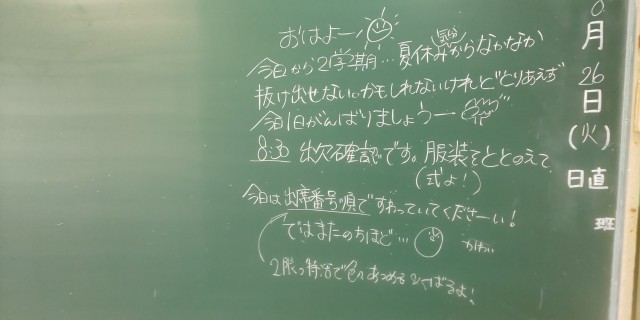 おはよー
今日から2学期…夏休み気分からなかなか
抜け出せないかもしれないけれどとりあえず
今日がんばりましょうー
8:30 出欠確認です。服装をととのえて
(式よ!)
今日は出席番号順ですわっていてくださーい!
ではまたのちほど…
2限の特活で色々あつめる くばるよ!
8
月
26
日
(火)
日直
班